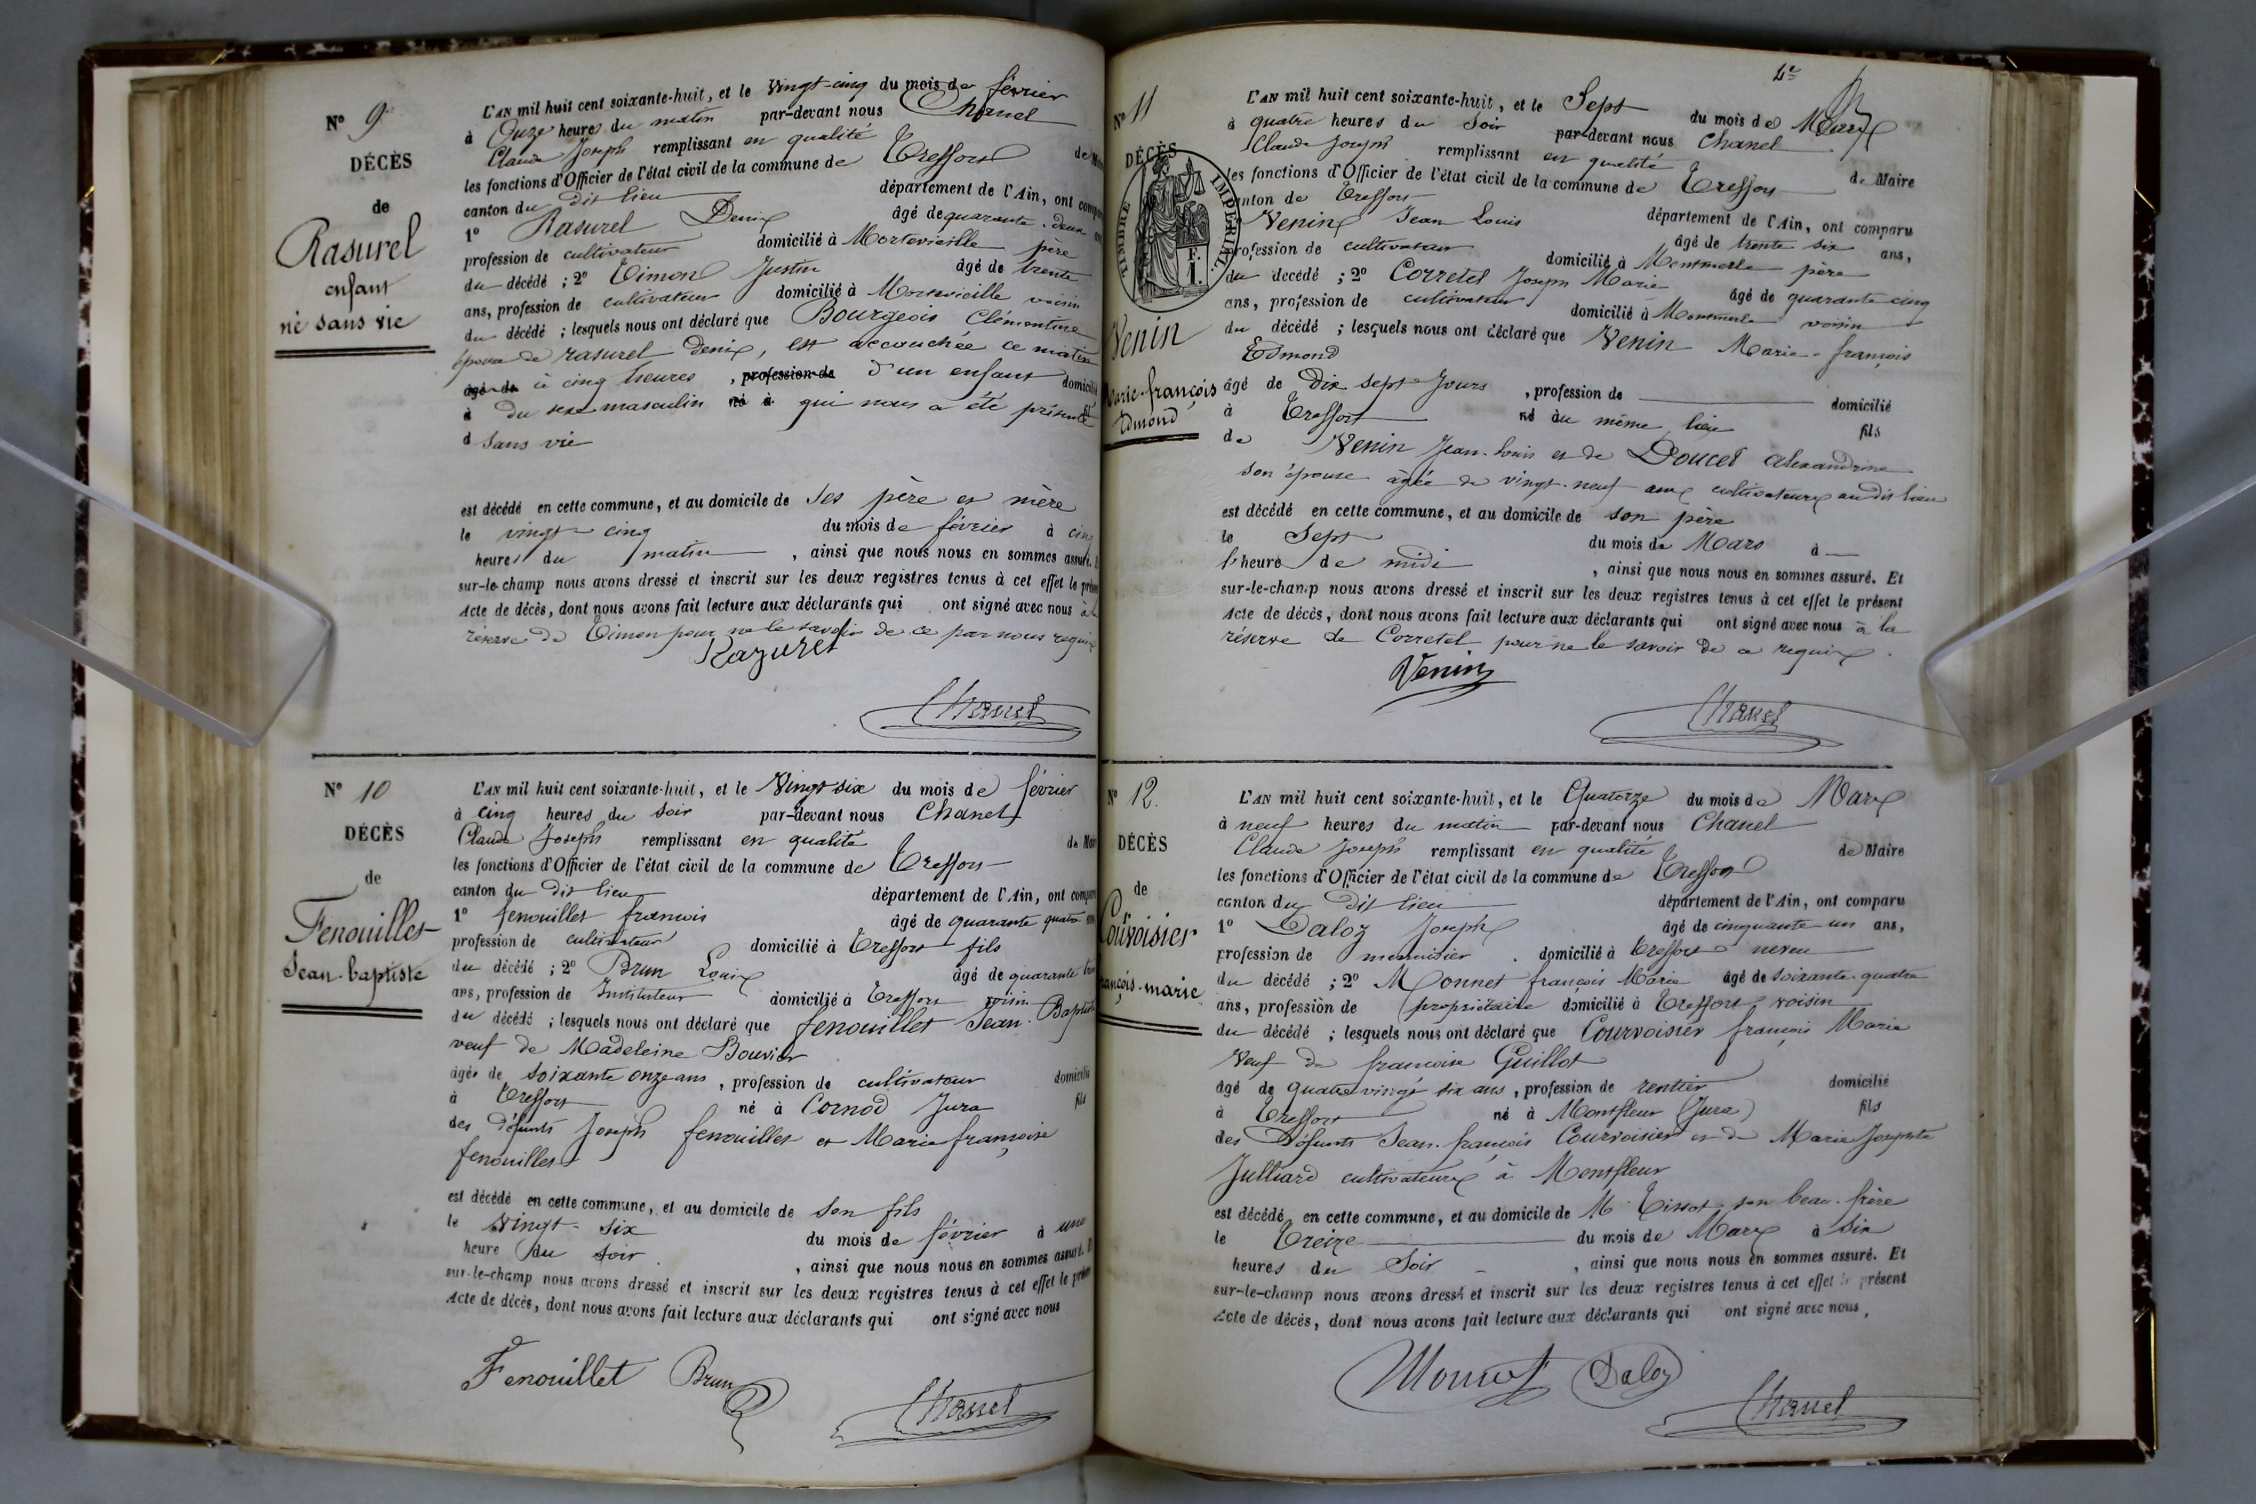 Nº 9
DÉCÈS
de
Rasurel
enfant
né sans vie
L'AN mil huit cent soixante-huit, et le vingt-cinq du mois de février
à Onze heures du matin par-devant nous Chanel
Claude Joseph remplissant en qualité de Maire
les fonctions d'Officier de l'état civil de la commune de Treffort
canton du dit lieu département de l'Ain, ont comparu
1º Rasurel Denix âgé de quarante-deux ans
profession de cultivateur domicilié à Mortevieille père
du décédé ; 2º Timon Justin âgé de trente
ans, profession de cultivateur domicilié à Mortevieille voisin
du décédé ; lesquels nous ont déclaré que Bourgeois Clémentine
épouse de rasurel denix, est accouchée ce matin
âgé de à cinq heures , profession de d'un enfant domicilié
à du sexe masculin né à qui nous a été présenté fil
d sans vie
est décédé en cette commune, et au domicile de ses père et mère
le vingt-cinq du mois de février à cinq
heures du matin , ainsi que nous nous en sommes assuré. Et
sur-le-champ nous avons dressé et inscrit sur les deux registres tenus à cet effet le présent
Acte de décès, dont nous avons fait lecture aux déclarants qui ont signé avec nous à la
réserve de Timon pour ne le savoir de ce par nous requix
Razurel
Chanel
Nº 10
DÉCÈS
de
Fenouillet
Jean-baptiste
L'AN mil huit cent soixante-huit, et le Vingt six du mois de février
à cinq heures du soir par-devant nous Chanel
Claude Joseph remplissant en qualité de Maire
les fonctions d'Officier de l'état civil de la commune de Treffort
canton du dit lieu département de l'Ain, ont comparu
1º fenouillet francois âgé de quarante quatre ans
profession de cultivateur domicilié à Treffort fils
du décédé ; 2º Brun Louix âgé de quarante
ans, profession de Instituteur domicilié à Treffort voisin
du décédé ; lesquels nous ont déclaré que fenouillet Jean-Baptiste
veuf de Madeleine Bouvier
âgée de soixante onze ans , profession de cultivateur domicilié
à Treffort né à Cornod Jura fils
des défunts Joseph fenouillet et Marie françoise
fenouillet
est décédé en cette commune, et au domicile de son fils
le vingt-six du mois de février à une
heure du soir , ainsi que nous nous en sommes assuré. Et
sur-le-champ nous avons dressé et inscrit sur les deux registres tenus à cet effet le présent
Acte de décès, dont nous avons fait lecture aux déclarants qui ont signé avec nous
Fenouillet Brun
Chanel
Nº 11
DÉCÈS
TIMBRE IMPÉRIAL
F.
1.
Venin
Marie-françois
Edmond
L'AN mil huit cent soixante-huit, et le Sept du mois de Marx
à quatre heures du soir par-devant nous Chanel
Claude Joseph remplissant en qualité de Maire
les fonctions d'Officier de l'état civil de la commune de Treffort
canton de Treffort département de l'Ain, ont comparu
Venin Jean Louis âgé de trente six ans,
profession de cultivateur domicilié à Montmerle père
du décédé ; 2º Corretel Joseph Marie âgé de quarante cinq
ans, profession de cultivateur domicilié à Montmerle voisin
du décédé ; lesquels nous ont déclaré que Venin Marie-françois
Edmond
âgé de dix sept Jours , profession de domicilié
à Treffort né au même lieu fils
de Venin Jean-Louis et de Doucet alexandrine
son épouse âgée de vingt-neuf anx cultivateurx au dit lieu
est décédé en cette commune, et au domicile de son père
le Sept du mois de Mars à
l'heure de midi , ainsi que nous nous en sommes assuré. Et
sur-le-champ nous avons dressé et inscrit sur les deux registres tenus à cet effet le présent
Acte de décès, dont nous avons fait lecture aux déclarants qui ont signé avec nous à la
réserve de Corretel pour ne le savoir de ce requix
Venin
Chanel
Nº 12.
DÉCÈS
de
Courvoisier
françois-marie
L'AN mil huit cent soixante-huit, et le Quatorze du mois de Marx
à neuf heures du matin par-devant nous Chanel
Claude Joseph remplissant en qualité de Maire
les fonctions d'Officier de l'état civil de la commune de Treffort
canton du dit lieu département de l'Ain, ont comparu
1º Daloz Joseph âgé de cinquante un ans,
profession de menuisier domicilié à Treffort neveu
du décédé ; 2º Monnet françois Marie âgé de soixante-quatre
ans, profession de propriétaire domicilié à Treffort voisin
du décédé ; lesquels nous ont déclaré que Courvoisier françois Marie
veuf de francoise Guillot
âgé de quatre vingt six ans , profession de rentier domicilié
à Treffort né à Montfleur (Jura) fils
des Défunts Jean-françois Courvoisier et de Marie Josephte
Julliard cultivateurx à Montfleur
est décédé en cette commune, et au domicile de M. Tissot son beau-frère
le treize du mois de Marx à six
heures du soir , ainsi que nous nous en sommes assuré. Et
sur-le-champ nous avons dressé et inscrit sur les deux registres tenus à cet effet le présent
Acte de décès, dont nous avons fait lecture aux déclarants qui ont signé avec nous,
Monnet Daloz
Chanel